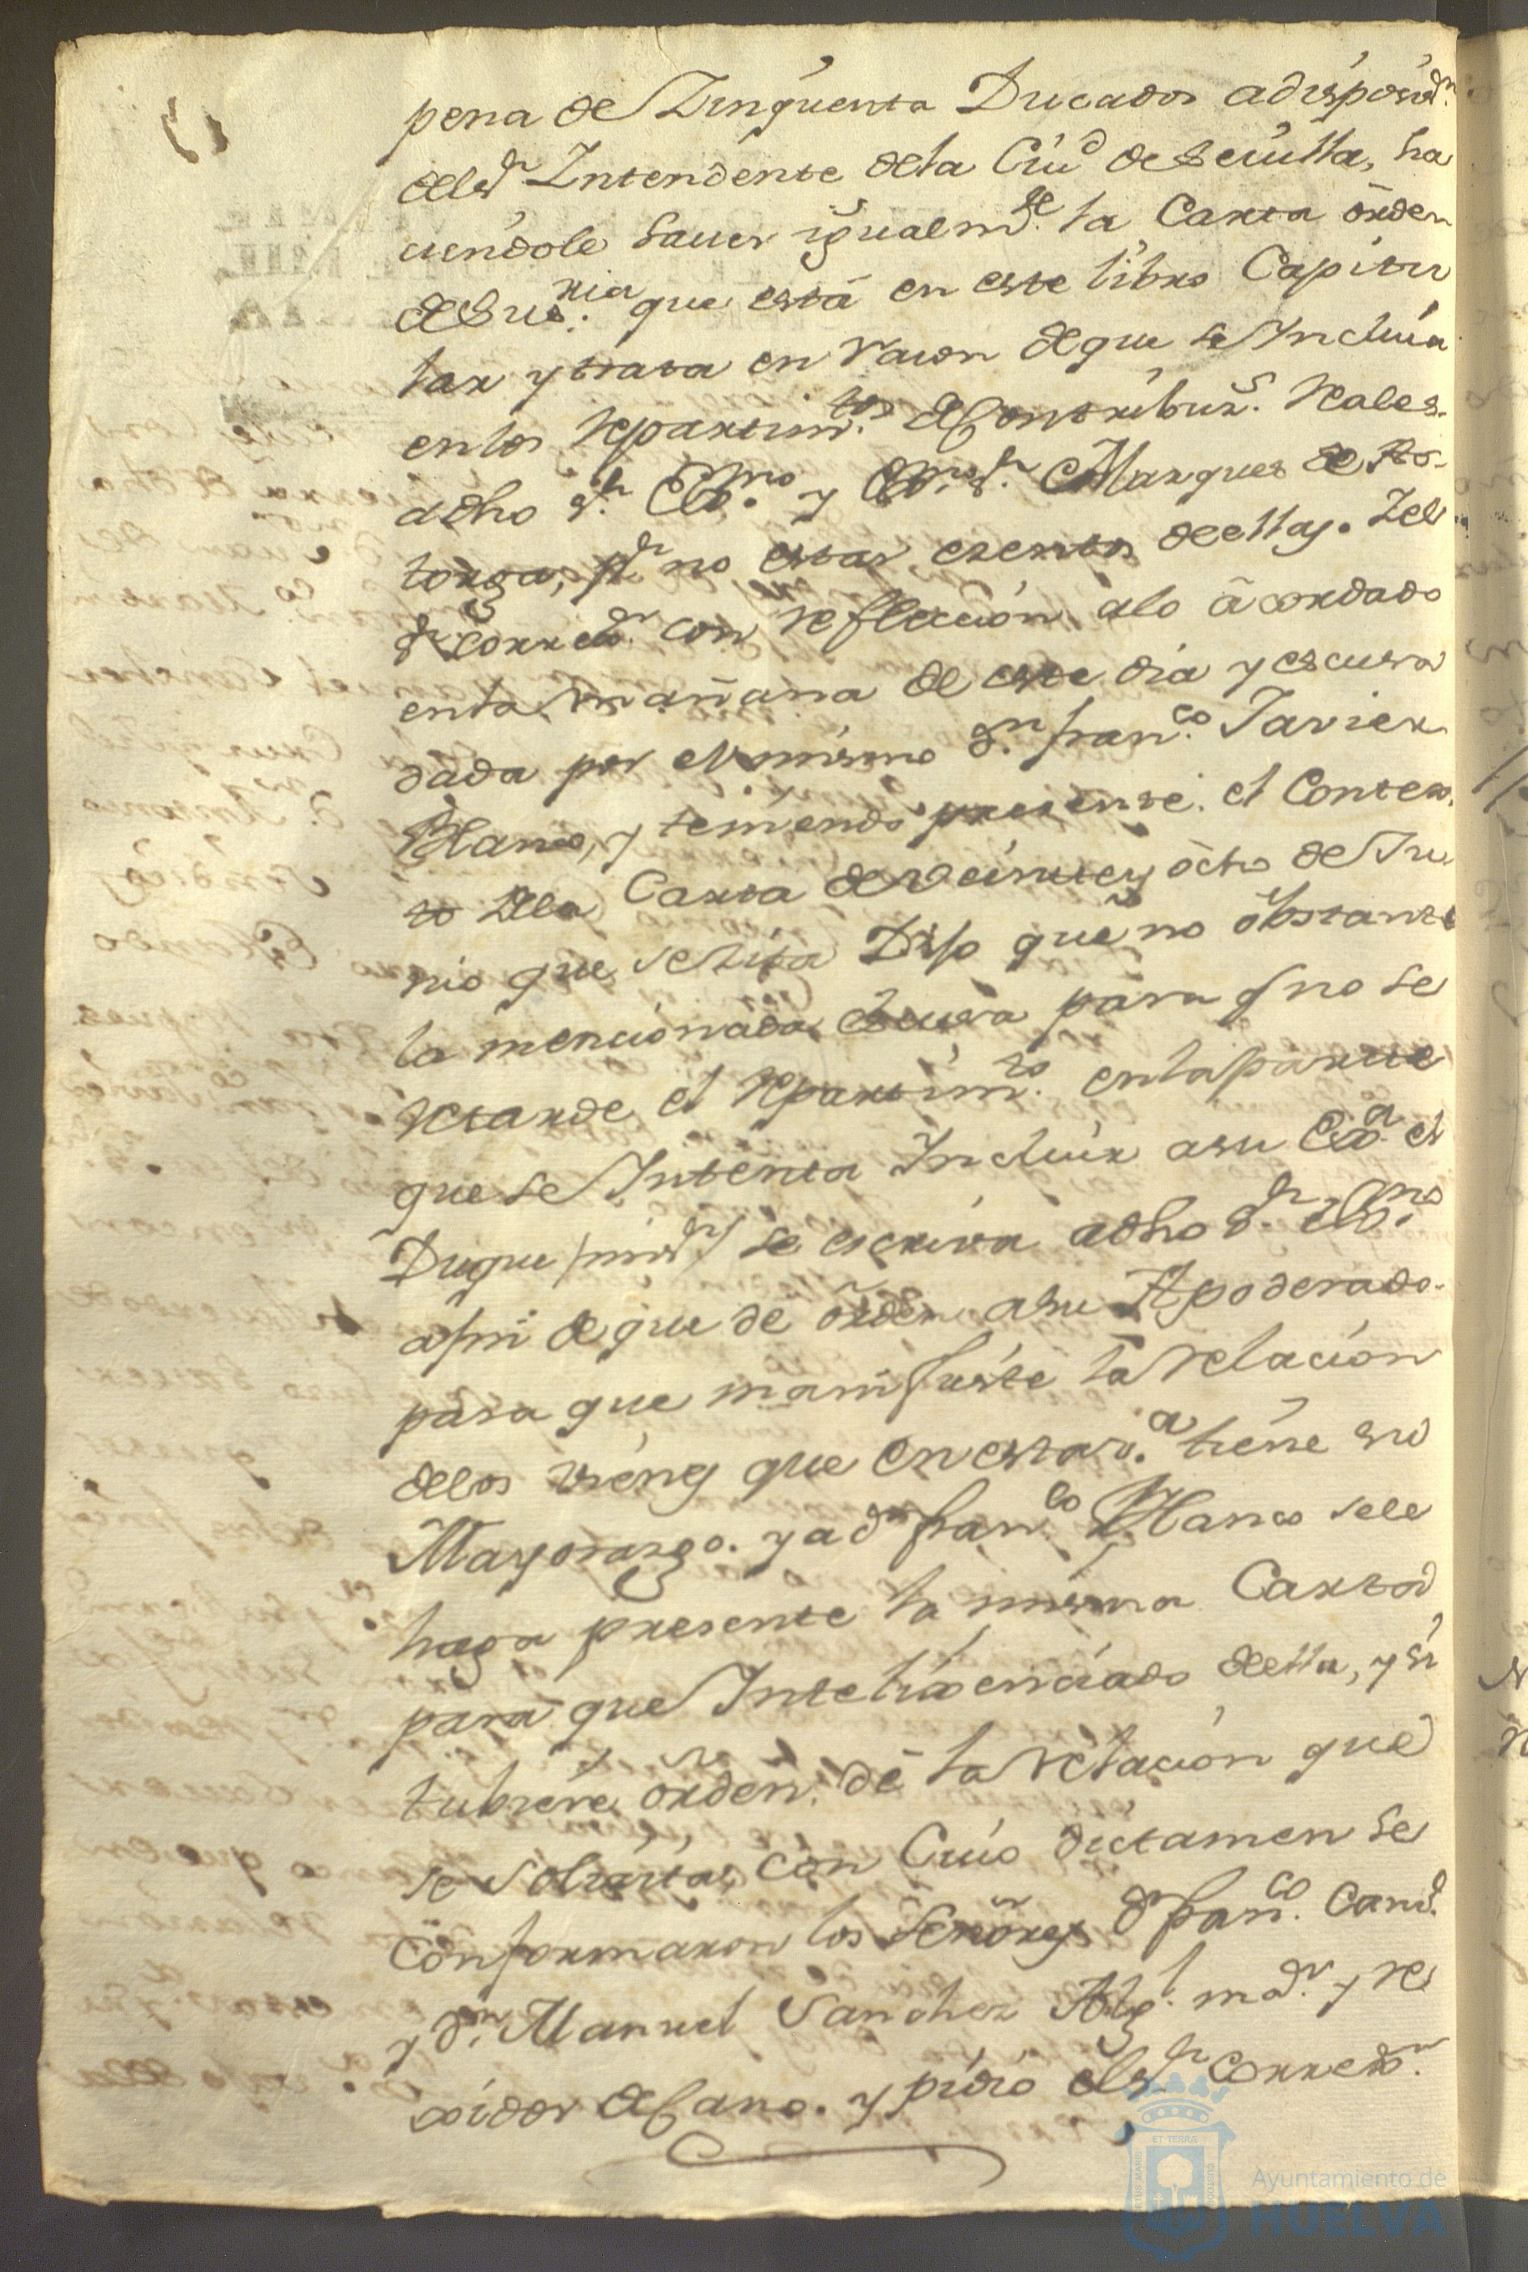 pena de Zinquenta Ducados adisposiⁿ.
del sʳ Intendente dela Ciuᵈ de Seuilla, ha
ciendole sauer igualmᵗᵉ. la Carta órden
de Su sʳⁱᵃ. que está en este libro Capitu
lar y trata en racion de que se Incluia
en los repartimᵗᵒˢ. de Contribuzˢ. Reales.
a dho sʳ. Exᵐᵒ. y Exᵐᵒ. sʳ. Marques de As-
torga, pʳ no estar exentos de ellas. Y el
sʳ Corredʳ. con refleccion alo acordado
en la mañana de este dia y escusa
dada por el mismo dⁿ. franᶜᵒ. Javier
Blanco, y teniendo presente el Contex-
to dela Carta de veinte y ócho de Ju
nio que se zita Dijo que no óbstante
la mencionada escusa para q no se
retarde el repartimᵗᵒ. en la parte
que se Intenta Incluir a su Exᵃ. el
Duque mi sʳ se escriva a dho sʳ. Exᵐᵒ
afin de que dé órden a su Apoderado
para que manifieste la relacion
delos vienes que en esta vᵃ. tiene su
Mayorazgo. y a dⁿ franᶜᵒ Blanco sele
haga presente la misma Carta
para que Intelixenciado de ella, y si
tubiere órden. dé la relacion que
se solicita, con Cuio dictamen se
conformaron los Señores dⁿ franᶜᵒ. Camᵈ.
y dⁿ. Manuel Sanchez Alg.ˡ maʳ. y Re
xidor decano. y pidió el sʳ Corredʳ.
Ayuntamiento de
HUELVA